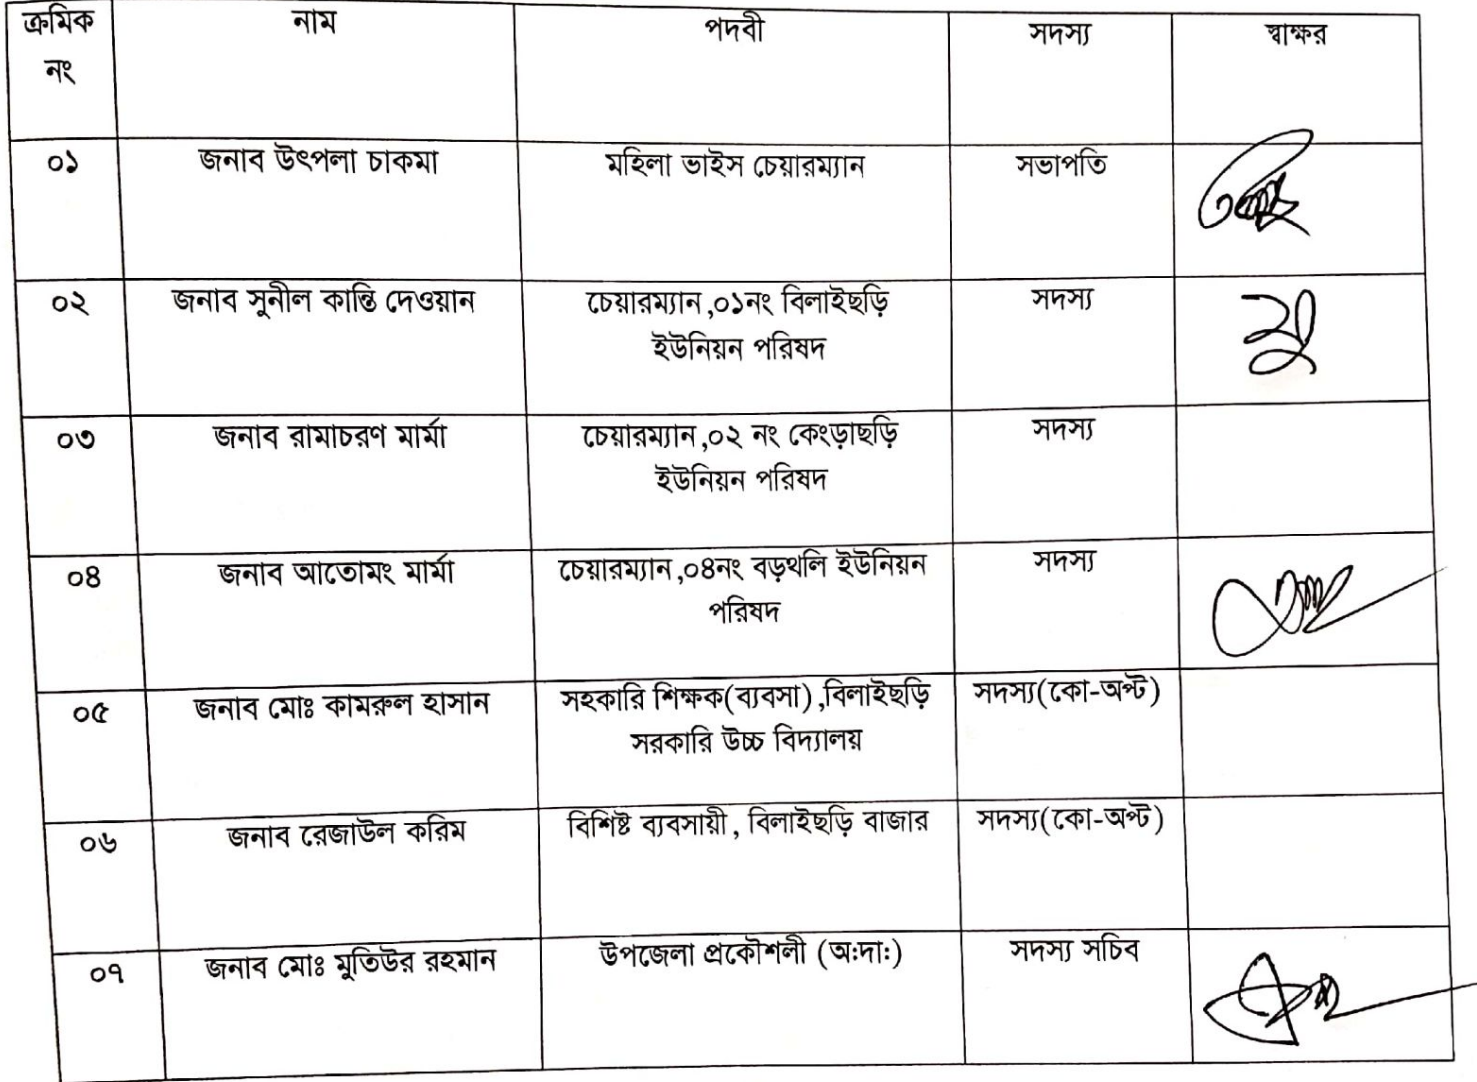 ক্রমিক নং
নাম
পদবী
সদস্য
স্বাক্ষর
০১
জনাব উৎপলা চাকমা
মহিলা ভাইস চেয়ারম্যান
সভাপতি
০২
জনাব সুনীল কান্তি দেওয়ান
চেয়ারম্যান,০১নং বিলাইছড়ি
ইউনিয়ন পরিষদ
সদস্য
০৩
জনাব রামাচরণ মার্মা
চেয়ারম্যান,০২ নং কেংড়াছড়ি
ইউনিয়ন পরিষদ
সদস্য
০৪
জনাব আতোমং মার্মা
চেয়ারম্যান,০৪নং বড়থলি ইউনিয়ন
পরিষদ
সদস্য
০৫
জনাব মোঃ কামরুল হাসান
সহকারি শিক্ষক(ব্যবসা),বিলাইছড়ি
সরকারি উচ্চ বিদ্যালয়
সদস্য(কো-অপ্ট)
০৬
জনাব রেজাউল করিম
বিশিষ্ট ব্যবসায়ী, বিলাইছড়ি বাজার
সদস্য(কো-অপ্ট)
০৭
জনাব মোঃ মুতিউর রহমান
উপজেলা প্রকৌশলী (অ:দা:)
সদস্য সচিব